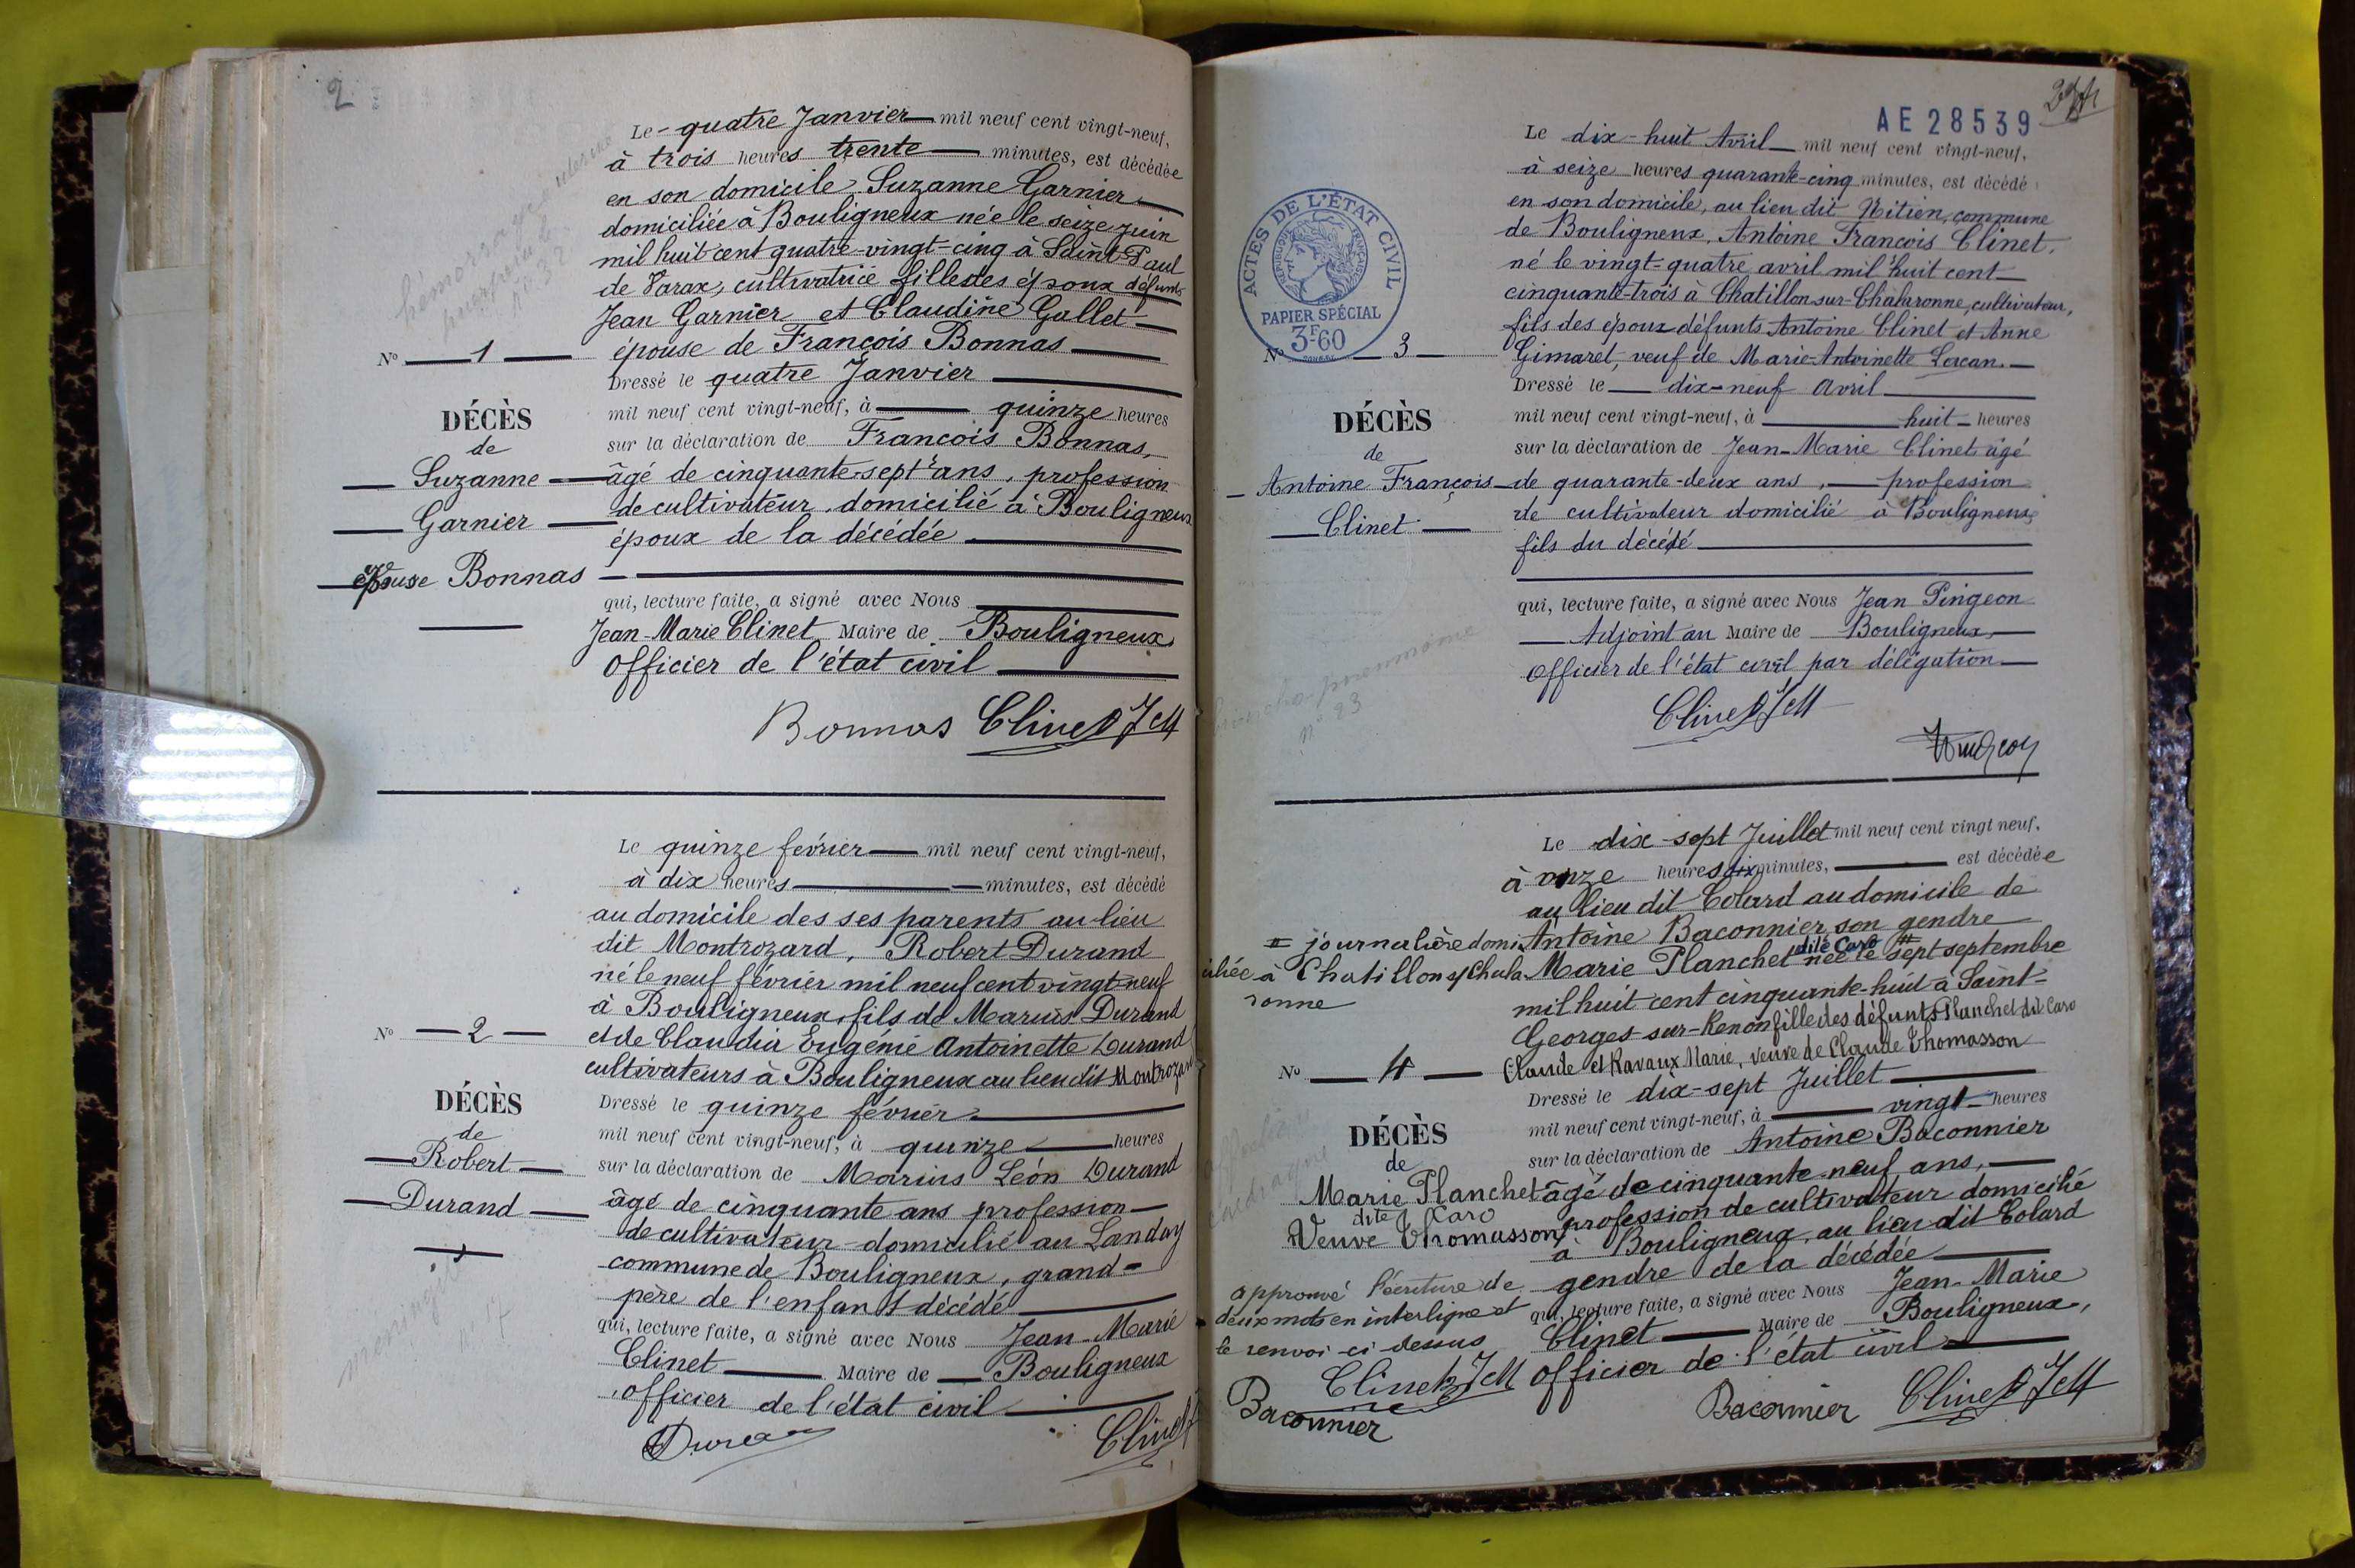 2
Le quatre Janvier mil neuf cent vingt-neuf,
à trois heures trente minutes, est décédée
en son domicile, Suzanne Garnier
domiciliée à Bouligneux née le seize juin
mil huit cent quatre-vingt-cinq à Saint-Paul
de Varax, cultivatrice fille des époux défunts
Jean Garnier et Claudine Gallet
épouse de François Bonnas
N° 1
Dressé le quatre Janvier
mil neuf cent vingt-neuf, à quinze heures
DÉCÈS
de
Suzanne
Garnier
épouse Bonnas
sur la déclaration de François Bonnas,
âgé de cinquante-sept ans, profession
de cultivateur domicilié à Bouligneux
époux de la décédée
qui, lecture faite, a signé avec Nous
Jean-Marie Clinet Maire de Bouligneux
Officier de l'état civil
Bonnas Clinet JM
Le quinze février mil neuf cent vingt-neuf,
à dix heures minutes, est décédé
au domicile des ses parents au lieu
dit Montrozard, Robert Durand
né le neuf février mil neuf cent vingt-neuf
à Bouligneux, fils de Marius Durand
et de Claudia Eugénie Antoinette Durand
cultivateurs à Bouligneux au lieu dit Montrozard
N° 2
DÉCÈS
de
Robert
Durand
Dressé le quinze février
mil neuf cent vingt-neuf, à quinze heures
sur la déclaration de Marius Léon Durand
âgé de cinquante ans profession
de cultivateur domicilié au Landay
commune de Bouligneux, grand-
père de l'enfant décédé
méningite
n° 17
qui, lecture faite, a signé avec Nous Jean-Marie
Clinet Maire de Bouligneux
officier de l'état civil
Durand Clinet
AE 28539
Le dix-huit Avril mil neuf cent vingt-neuf,
à seize heures quarante-cinq minutes, est décédé
en son domicile, au lieu dit Nitien, commune
de Bouligneux, Antoine François Clinet,
né le vingt-quatre avril mil huit cent
cinquante-trois à Chatillon-sur-Chalaronne, cultivateur,
fils des époux défunts Antoine Clinet et Anne
Gimaret, veuf de Marie-Antoinette
ACTES DE L'ÉTAT CIVIL
RÉPUBLIQUE FRANÇAISE
PAPIER SPÉCIAL
3F60
N° 3
Dressé le dix-neuf Avril
mil neuf cent vingt-neuf, à huit heures
DÉCÈS
de
Antoine François
Clinet
sur la déclaration de Jean-Marie Clinet âgé
de quarante-deux ans, profession
de cultivateur domicilié à Bouligneux
fils du décédé
broncho-pneumonie
n° 23
qui, lecture faite, a signé avec Nous Jean Pingeon
Adjoint au Maire de Bouligneux,
Officier de l'état civil par délégation
Clinet JM
Le dix-sept Juillet mil neuf cent vingt neuf,
à onze heures dix minutes, est décédée
au lieu dit Colard au domicile de
Antoine Baconnier, son gendre
Marie Planchet dite Caro # née le sept septembre
mil huit cent cinquante-huit à Saint-
Georges-sur-Renon fille des défunts Planchet dit Caro
Claude et Ravaux Marie, veuve de Claude Thomasson
# journalière domi
ciliée à Chatillon s/ Chala
ronne
N° 4
DÉCÈS
de
Marie Planchet
dite Caro
Veuve Thomasson
Dressé le dix-sept Juillet
mil neuf cent vingt-neuf, à vingt heures
sur la déclaration de Antoine Baconnier
âgé de cinquante-neuf ans,
profession de cultivateur domicilié
à Bouligneux, au lieu dit Colard
gendre de la décédée
qui, lecture faite, a signé avec Nous Jean-Marie
Clinet Maire de Bouligneux,
officier de l'état civil
approuvé l'écriture de
deux mots en interligne et
le renvoi ci-dessus
Clinet JM
Baconnier
Baconnier Clinet JM